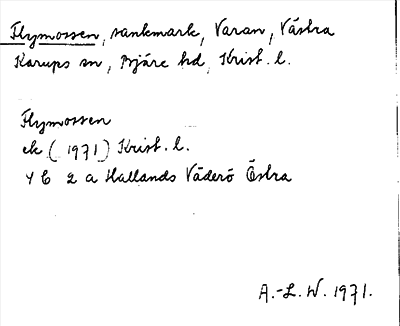 Flymossen, sankmark, Varan, Västra
Karups sn, Bjäre hd, Krist. l.
Flymossen
ek (1971) Krist. l.
4 C 2 a Hallands Väderö Östra
A.-L. W. 1971.